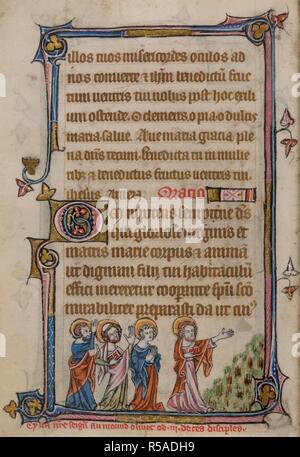 illos tuos misericordes oculos ad
nos conuerte et ihm benedictū fruc
tum uentris tui nobis post hoc exili
um ostende. O clemens, o pia o dulcis
maria. salue. Aue maria gracia ple
na dn̄s tecum. benedicta tu in mulie
ribꝫ et benedictus fructus uentris tui.
ihesus. Amen. Oracio
sempiterne ds̄
qui gloriose virginis et
matris marie corpus et animam
ut dignum filij tui habitaculū
effici mereretur cooperante spū sc̄o
mirabiliter preparasti. da ut cuiꝰ
alamy
R5ADH9